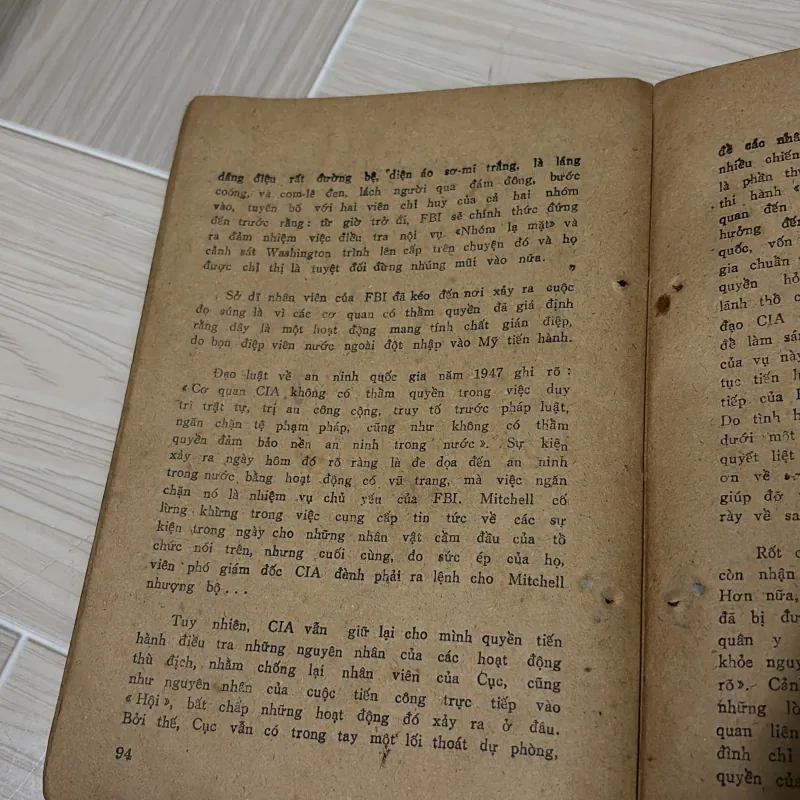 dáng điện rất đường bệ, diện áo sơ-mi trắng, là láng
coóng, và com-lê đen, lách người qua đám đông, bước
vào, tuyên bố với hai viên chỉ huy của cả hai nhóm
đến trước rằng: từ giờ trở đi, FBI sẽ chính thức đứng
ra đảm nhiệm việc điều tra nội vụ «Nhóm lạ mặt» và
cảnh sát Washington trình lên cấp trên chuyện đó và họ
được chỉ thị là tuyệt đối đừng nhúng mũi vào nữa.
Sở dĩ nhân viên của FBI đã kéo đến nơi xảy ra cuộc
đọ súng là vì các cơ quan có thẩm quyền đã giả định
rằng đây là một hoạt động mang tính chất gián điệp,
do bọn điệp viên nước ngoài đột nhập vào Mỹ tiến hành.
Đạo luật về an ninh quốc gia năm 1947 ghi rõ :
« Cơ quan CIA không có thẩm quyền trong việc duy
trì trật tự, trị an công cộng, truy tố trước pháp luật,
ngăn chặn tệ phạm pháp, cũng như không có thẩm
quyền đảm bảo nền an ninh trong nước». Sự kiện
xảy ra ngày hôm đó rõ ràng là đe dọa đến an ninh
trong nước bằng hoạt động có vũ trang, mà việc ngăn
chặn nó là nhiệm vụ chủ yếu của FBI. Mitchell cố
lừng khừng trong việc cung cấp tin tức về các sự
kiện trong ngày cho những nhân vật cầm đầu của tổ
chức nói trên, nhưng cuối cùng, do sức ép của họ,
viên phó giám đốc CIA đành phải ra lệnh cho Mitchell
nhượng bộ...
Tuy nhiên, CIA vẫn giữ lại cho mình quyền tiến
hành điều tra những nguyên nhân của các hoạt động
thù địch, nhằm chống lại nhân viên của Cục, cũng
như nguyên nhân của cuộc tiến công trực tiếp vào
« Hội», bất chấp những hoạt động đó xảy ra ở đâu.
Bởi thế, Cục vẫn có trong tay một lối thoát dự phòng,
94
để các nhâ
nhiều chiến
là phần
thi hành
quan đến
hưởng đến
quốc, vốn
gia chuẩn
quyền
lãnh thổ
đạo CIA
để làm
của vụ này
tục tiến
tiếp của
Do tình
dưới một
quyết liệt
ơn về
giúp đỡ
rày về
Rốt
còn nhận
Hơn nữa,
đã bị
quân y
khỏe
rõ».
những
quan
đình chỉ
quyền của